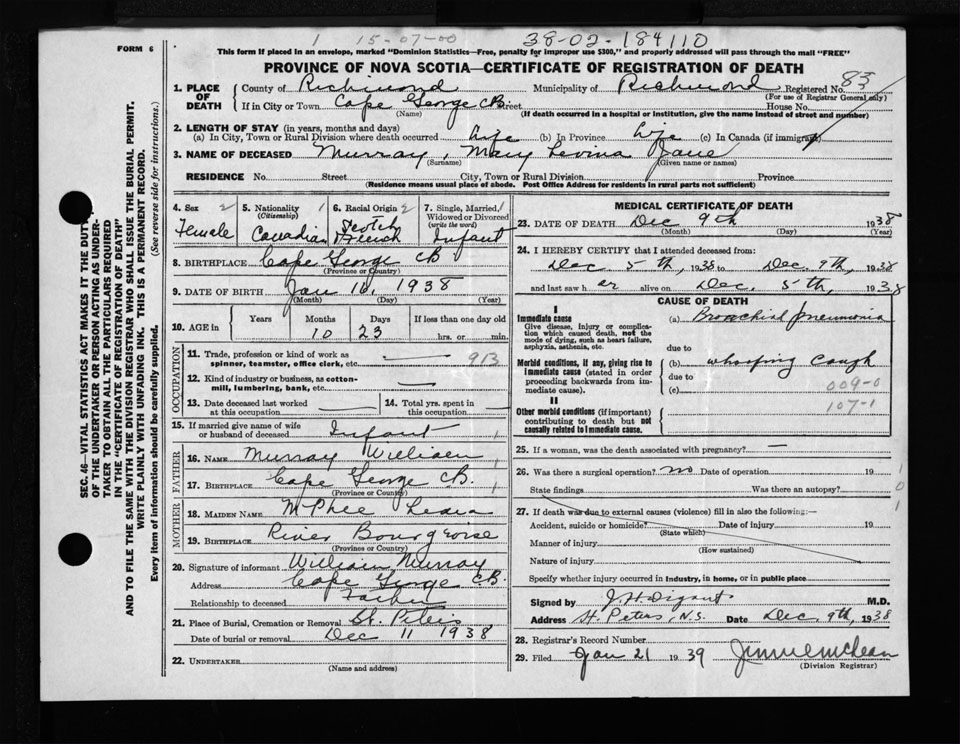 1 15-07-00 38-02-184110
FORM 6
This form if placed in an envelope, marked "Dominion Statistics—Free, penalty for improper use $300," and properly addressed will pass through the mail "FREE"
PROVINCE OF NOVA SCOTIA—CERTIFICATE OF REGISTRATION OF DEATH
1. PLACE OF DEATH County of Richmond Municipality of Richmond Registered No. 83
(For use of Registrar General only)
If in City or Town Cape George CB Street House No.
(Name) (If death occurred in a hospital or institution, give the name instead of street and number)
2. LENGTH OF STAY (in years, months and days)
(a) In City, Town or Rural Division where death occurred Life (b) In Province Life (c) In Canada (if immigrant)
3. NAME OF DECEASED Murray, Mary Levina Jane
(Surname) (Given name or names)
RESIDENCE No. Street City, Town or Rural Division Province
(Residence means usual place of abode. Post Office Address for residents in rural parts not sufficient)
4. Sex 2 Female
5. Nationality 1 (Citizenship) Canadian
6. Racial Origin 2 Scotch French
7. Single, Married, Widowed or Divorced (write the word) 1 Infant
8. BIRTHPLACE Cape George CB
(Province or Country)
9. DATE OF BIRTH Jan 16, 1938
(Month) (Day) (Year)
10. AGE in Years Months 10 Days 23 If less than one day old
hrs. or min.
OCCUPATION
11. Trade, profession or kind of work as spinner, teamster, office clerk, etc. 913
12. Kind of industry or business, as cotton-mill, lumbering, bank, etc.
13. Date deceased last worked at this occupation
14. Total yrs. spent in this occupation
15. If married give name of wife or husband of deceased Infant 1
FATHER
16. NAME Murray William 1
17. BIRTHPLACE Cape George CB. 1
(Province or Country)
MOTHER
18. MAIDEN NAME McPhee
19. BIRTHPLACE River Bourgeoise
(Province or Country)
20. Signature of informant William Murray
Address Cape George CB.
Relationship to deceased Father
21. Place of Burial, Cremation or Removal St. Peters
Date of burial or removal Dec 11 1938
22. UNDERTAKER
(Name and address)
MEDICAL CERTIFICATE OF DEATH
23. DATE OF DEATH Dec 9th 1938
(Month) (Day) (Year)
24. I HEREBY CERTIFY that I attended deceased from:
Dec 5th, 1938 to Dec. 9th, 1938
and last saw h er alive on Dec. 5th, 1938
CAUSE OF DEATH
I
Immediate cause
Give disease, injury or complication which caused death, not the mode of dying, such as heart failure, asphyxia, asthenia, etc.
(a) Bronchial pneumonia
due to
Morbid conditions, if any, giving rise to immediate cause (stated in order proceeding backwards from immediate cause).
(b) whooping cough
due to 009-0
(c)
107-1
II
Other morbid conditions (if important) contributing to death but not causally related to immediate cause.
25. If a woman, was the death associated with pregnancy? —
26. Was there a surgical operation? no Date of operation 19 1
State findings Was there an autopsy? 0
27. If death was due to external causes (violence) fill in also the following:— 1
Accident, suicide or homicide? Date of injury 19
(State which)
Manner of injury
(How sustained)
Nature of injury
Specify whether injury occurred in industry, in home, or in public place
Signed by M.D.
Address St. Peters, N.S. Date Dec. 9th, 1938
28. Registrar's Record Number
29. Filed Jan 21 1939
(Division Registrar)
SEC. 46—VITAL STATISTICS ACT MAKES IT THE DUTY
OF THE UNDERTAKER OR PERSON ACTING AS UNDER-
TAKER TO OBTAIN ALL THE PARTICULARS REQUIRED
IN THE "CERTIFICATE OF REGISTRATION OF DEATH"
AND TO FILE THE SAME WITH THE DIVISION REGISTRAR WHO SHALL ISSUE THE BURIAL PERMIT.
WRITE PLAINLY WITH UNFADING INK. THIS IS A PERMANENT RECORD.
Every item of information should be carefully supplied. (See reverse side for instructions.)